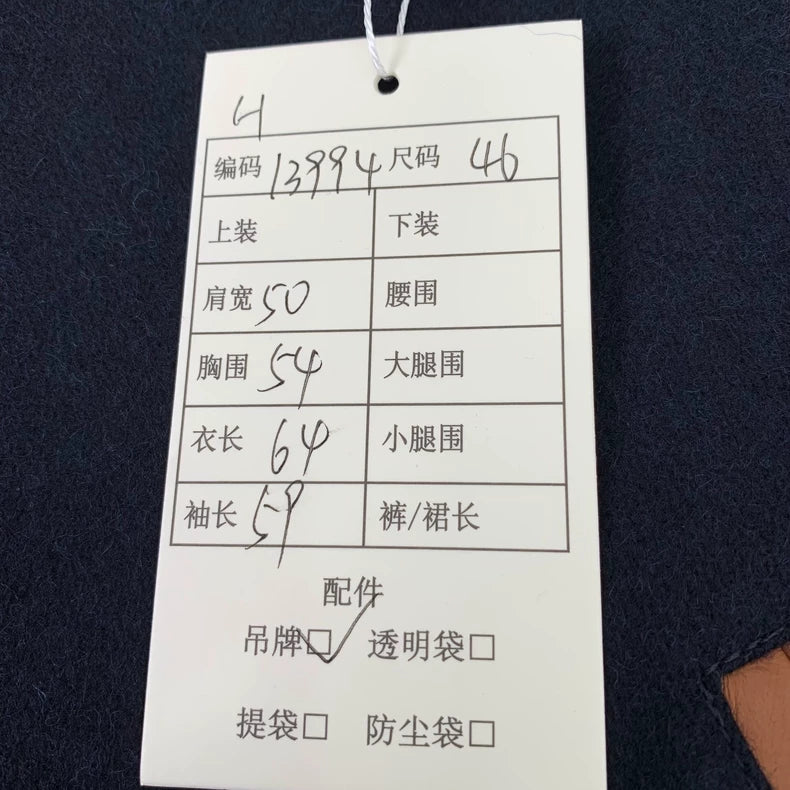 H
编码 13994 尺码 46
上装 下装
肩宽 50 腰围
胸围 54 大腿围
衣长 64 小腿围
袖长 59 裤/裙长
配件
吊牌☑ 透明袋□
提袋□ 防尘袋□